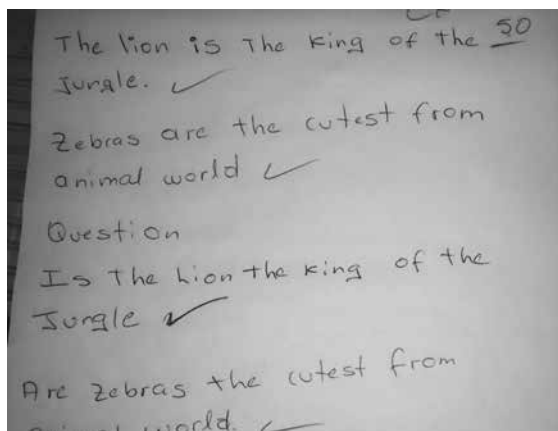 The lion is The king of the 50
Jurgle. ✓
Zebras are the cutest from
animal world ✓
Question
Is The Lion the king of the
Jurgle ✓
Are zebras the cutest from
animal world. ✓